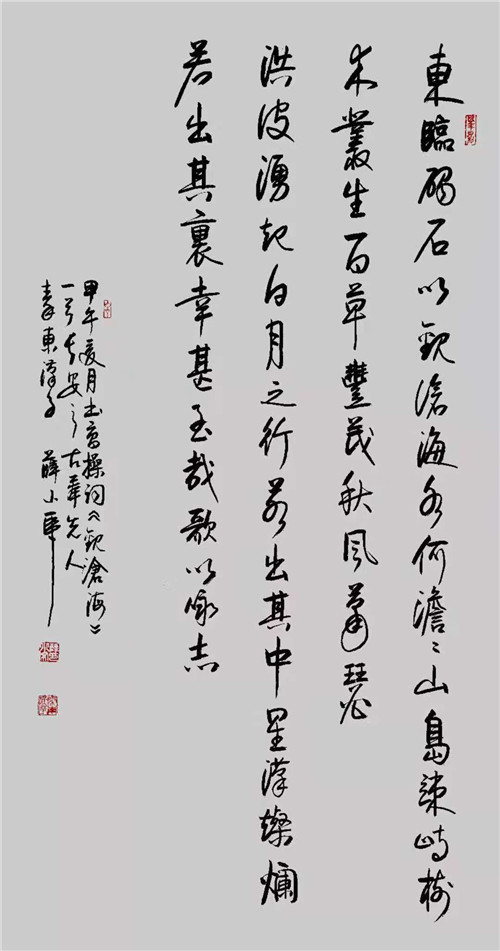 東臨碣石以觀滄海水何澹〻山島竦峙樹
木叢生百草豐茂秋風蕭瑟
洪波湧起日月之行若出其中星漢燦爛
若出其裏幸甚至哉歌以詠志
甲午夏月書曹操詞《觀滄海》
東漢子 薛小